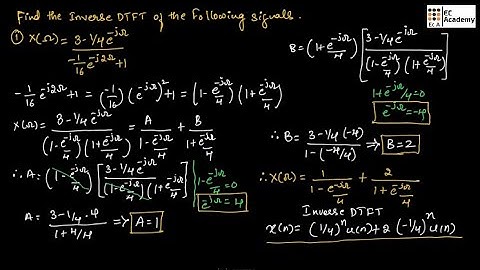 Find the Inverse DTFT of the following signals.
① X(Ω) = (3 - 1/4 e^{-jΩ}) / (-1/16 e^{-j2Ω} + 1)
-1/16 e^{-j2Ω} + 1 = (-1/16) (e^{-jΩ})² + 1 = (1 - e^{-jΩ}/4) (1 + e^{-jΩ}/4)
X(Ω) = (3 - 1/4 e^{-jΩ}) / ((1 - e^{-jΩ}/4) (1 + e^{-jΩ}/4)) = A / (1 - e^{-jΩ}/4) + B / (1 + e^{-jΩ}/4)
∴ A = (1 - e^{-jΩ}/4) [(3 - 1/4 e^{-jΩ}) / ((1 - e^{-jΩ}/4) (1 + e^{-jΩ}/4))]
1 - e^{-jΩ}/4 = 0
e^{-jΩ} = 4
A = (3 - 1/4 · 4) / (1 + 4/4) ⇒ A = 1
EC
Academy
EC A
B = (1 + e^{-jΩ}/4) [(3 - 1/4 e^{-jΩ}) / ((1 - e^{-jΩ}/4) (1 + e^{-jΩ}/4))]
1 + e^{-jΩ}/4 = 0
e^{-jΩ} = -4
∴ B = (3 - 1/4 (-4)) / (1 - (-4/4)) ⇒ B = 2
∴ X(Ω) = 1 / (1 - e^{-jΩ}/4) + 2 / (1 + e^{-jΩ}/4)
Inverse DTFT
x(n) = (1/4)^n u(n) + 2 (-1/4)^n u(n)